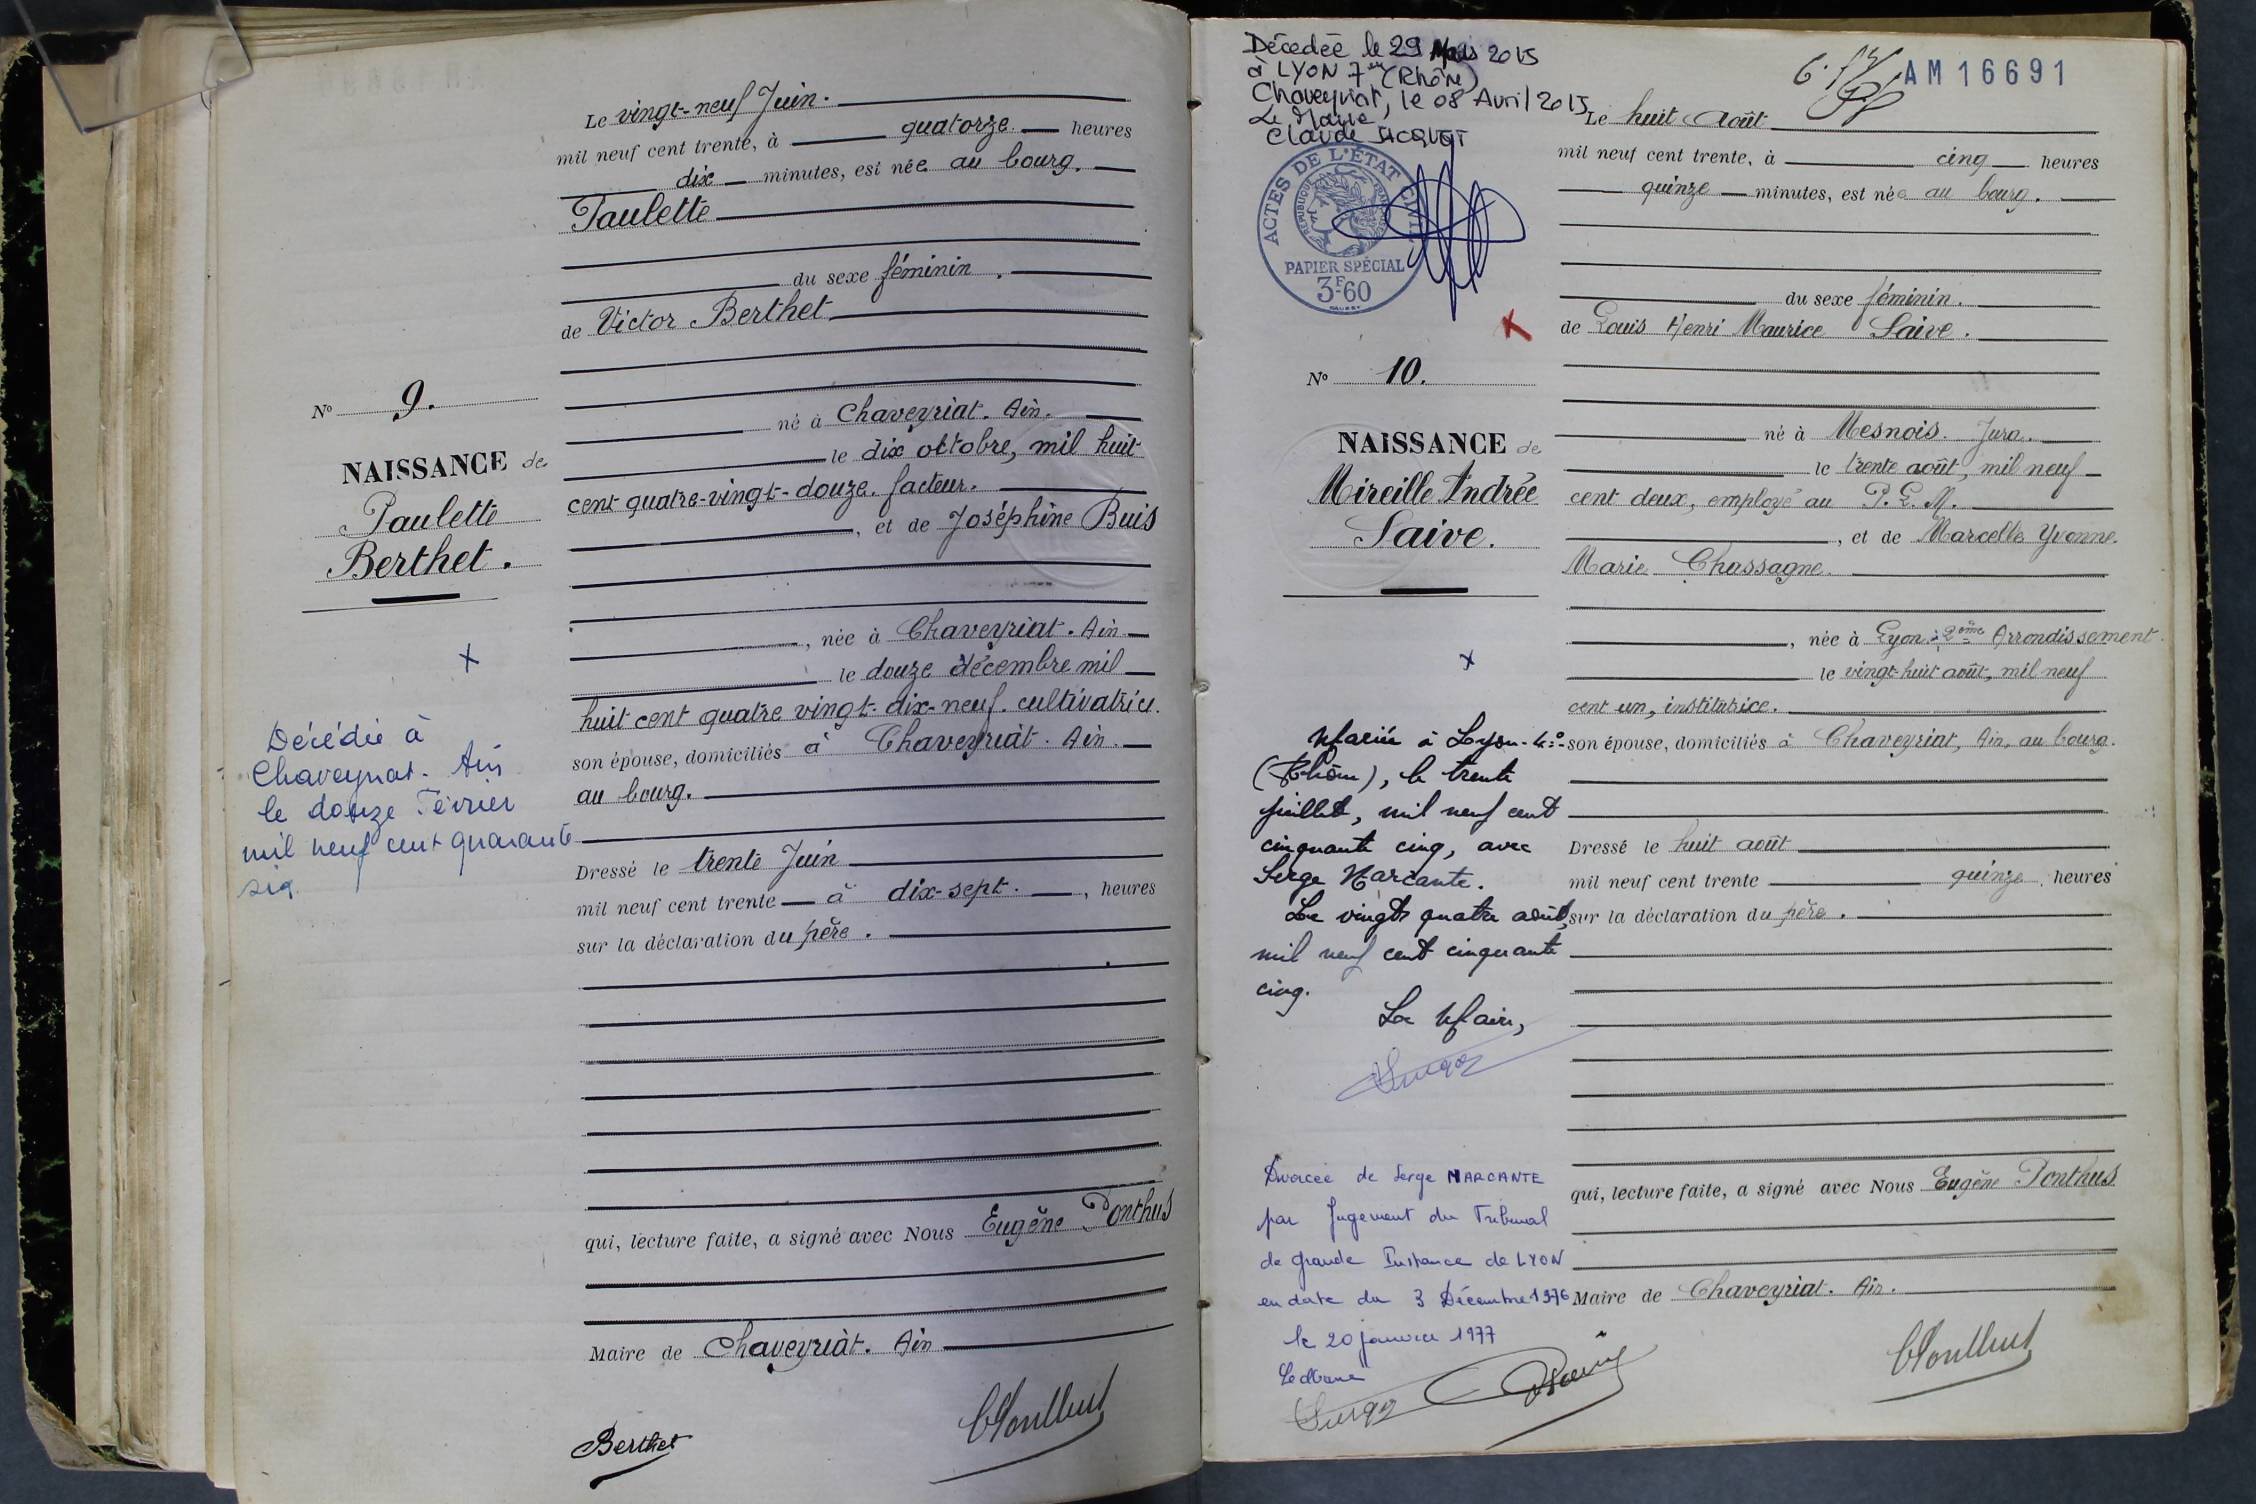 Le vingt-neuf Juin.
mil neuf cent trente, à quatorze heures
dix minutes, est née au bourg.
Paulette
du sexe féminin.
de Victor Berthet
né à Chaveyriat. Ain.
le dix octobre, mil huit
cent quatre-vingt-douze. facteur.
, et de Joséphine Buis
, née à Chaveyriat. Ain
le douze décembre mil
huit cent quatre vingt-dix-neuf. cultivatrice.
son épouse, domiciliés à Chaveyriat. Ain.
au bourg.
Dressé le trente Juin
mil neuf cent trente à dix-sept. , heures
sur la déclaration du père.
qui, lecture faite, a signé avec Nous Eugène Ponthus
Maire de Chaveyriat. Ain
Berthet
No 9.
NAISSANCE de
Paulette
Berthet.
Décédée à
Chaveyriat. Ain
le douze Février
mil neuf cent quarante
six.
Décedéé le 29 Mars 2015
à LYON 7 (Rhône)
Chaveyriat, le 08 Avril 2015
Le Maire
Claude JACQUET
ACTES DE L'ÉTAT CIVIL
RÉPUBLIQUE FRANÇAISE
PAPIER SPÉCIAL
3F-60
No 10.
NAISSANCE de
Mireille Andrée
Saive.
Mariée à Lyon-4e-
(Rhône), le trente
juillet, mil neuf cent
cinquante cinq, avec
Serge Marcante.
Le vingt quatre août,
mil neuf cent cinquante
cinq.
Le Maire,
Divorcée de Serge MARCANTE
par Jugement du Tribunal
de grande Instance de LYON
en date du 3 Décembre 1976
le 20 janvier 1977
Le Maire
AM16691
Le huit Août
mil neuf cent trente, à cinq heures
quinze minutes, est née au bourg.
du sexe féminin.
de Louis Henri Maurice Saive.
né à Mesnois. Jura.
le trente août, mil neuf
cent deux, employé au P.L.M.
, et de Marcelle Yvonne.
Marie Chassagne.
, née à Lyon. 2ème Arrondissement.
le vingt-huit août, mil neuf
cent un, institutrice.
son épouse, domiciliés à Chaveyriat, Ain, au bourg.
Dressé le huit août
mil neuf cent trente quinze heures
sur la déclaration du père.
qui, lecture faite, a signé avec Nous Eugène Ponthus
Maire de Chaveyriat. Ain.